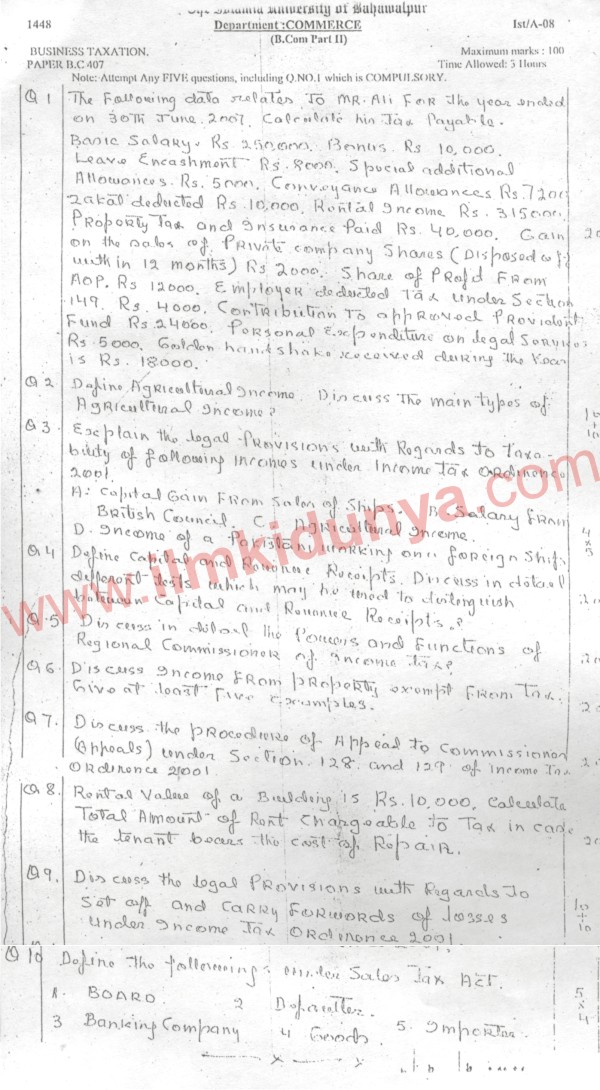 The Islamia University of Bahawalpur
1448 Department :COMMERCE Ist/A-08
(B.Com Part II)
BUSINESS TAXATION. Maximum marks : 100
PAPER B.C 407 Time Allowed: 3 Hours
Note: Attempt Any FIVE questions, including Q.NO.1 which is COMPULSORY.
Q 1 The Following data relates To MR. Ali For the year ended
on 30th June, 2007, Calculate his Tax Payable.
Basic Salary. Rs. 250000. Bonus. Rs 10,000.
Leave Encashment Rs. 8000. Special additional
Allowances. Rs. 5000. Conveyance Allowances Rs. 7200
Zakat deducted Rs. 10,000. Rental Income Rs. 315000.
Property Tax and Insurance Paid Rs. 40,000. Gain 20
on the sales of Private company Shares (Disposed off
with in 12 months) Rs 2000. Share of Profit From
AOP. Rs 12000. Employer deducted Tax under Section
149. Rs. 4000. Contribution To approved Provident
Fund Rs. 24000. Personal Expenditure on legal Services
Rs. 5000. Golden handshake received during the year
is Rs. 18000.
Q 2 Define Agricultural Income. Discuss The main types of 10
Agricultural Income? + 10
Q 3 Explain the legal Provisions with Regards To taxa-
bility of following incomes under Income Tax Ordinence
2001.
A: Capital Gain From Sales of Ships. B. Salary From 4
British Council. C. Agricultural Income. x
D. Income of a Pakistani working on a foreign Ship. 5
Q 4 Define Capital and Revenue Receipts. Discuss in detail
different tests which may be used to distinguish 20
between Capital and Revenue Receipts.?
Q.5 Discuss in detail the Powers and Functions of
Regional Commissioner of Income Tax? 20
Q 6. Discuss Income From property exempt From Tax.
Give at least Five examples. 20
Q 7. Discuss the procedure of Appeal to Commissioner
(Appeals) under Section. 128. and 129 of Income Tax 20
Ordinence 2001.
Q 8. Rental Value of a Building is Rs. 10,000, Calculate
Total Amount of Rent Chargeable to Tax in case
the tenant bears the cost of Repair. 20
Q 9. Discuss the legal Provisions with Regards To
Set off and Carry Forwords of losses 10
under Income Tax Ordinence 2001. + 10
Q 10 Define the followings under Sales Tax Act.
1. BOARD 2 Defaulter. 5
3 Banking Company 4 Goods. 5. Importer. x 4
www.ilmkidunya.com